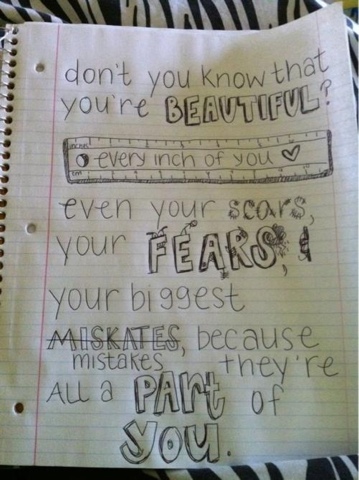 don't you know that
you're BEAUTIFUL?
inches
every inch of you ♡
cm
even your scars,
your FEARS, &
your biggest
MISKATES, because
mistakes they're
ALL a PART of
YOU.